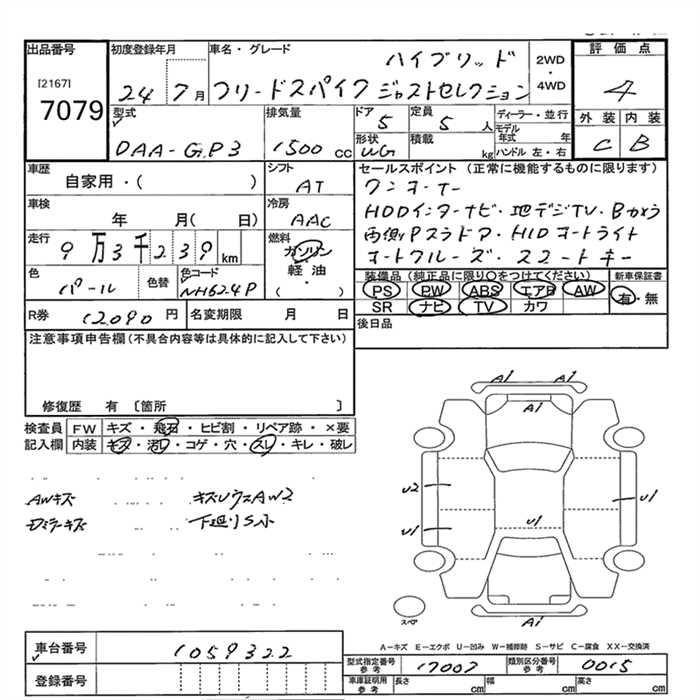 出品番号
[2167]
7079
初度登録年月
24 7月
車名・グレード
ハイブリッド
フリードスパイク ジャストセレクション
2WD・4WD
評価点
4
外装 内装
C B
型式
DAA-GP3
排気量
1500 cc
ドア
5
定員
5 人
形状
WG
積載
kg
ディーラー・並行
モデル年式 年
ハンドル 左・右
車歴
自家用・( )
シフト
AT
車検
年 月( 日)
冷房
AAC
走行
9万3千239km
燃料
ガソリン
軽油
・
( )
色
パール
色替
色コード
NH624P
R券
12090 円
名変期限 月 日
セールスポイント (正常に機能するものに限ります)
ワンオーナー
HDDインターナビ・地デジTV・Bカメラ
両側Pスラドア・HIDオートライト
オートクルーズ・スマートキー
装備品 (純正品に限り○をつけてください)
PS PW ABS エアB AW
SR ナビ TV カワ
新車保証書
有・無
後日品
注意事項申告欄 (不具合内容等は具体的に記入して下さい)
修復歴 有 〔箇所 〕
検査員記入欄
FW キズ・飛石・ヒビ割・リペア跡・×要
内装 キズ・汚れ・コゲ・穴・スレ・キレ・破レ
AWキズ キズレウスAW2
Dミラーキズ 下廻りS小
A1 A1
A1
U2
U1
U1
U1
スペア
A-キズ E-エクボ U-凹み W-補修跡 S-サビ C-腐食 XX-交換済
車台番号
1059322
登録番号
型式指定番号 参考
17007
類別区分番号 参考
0015
車庫証明用 参考
長さ cm 幅 cm 高さ cm